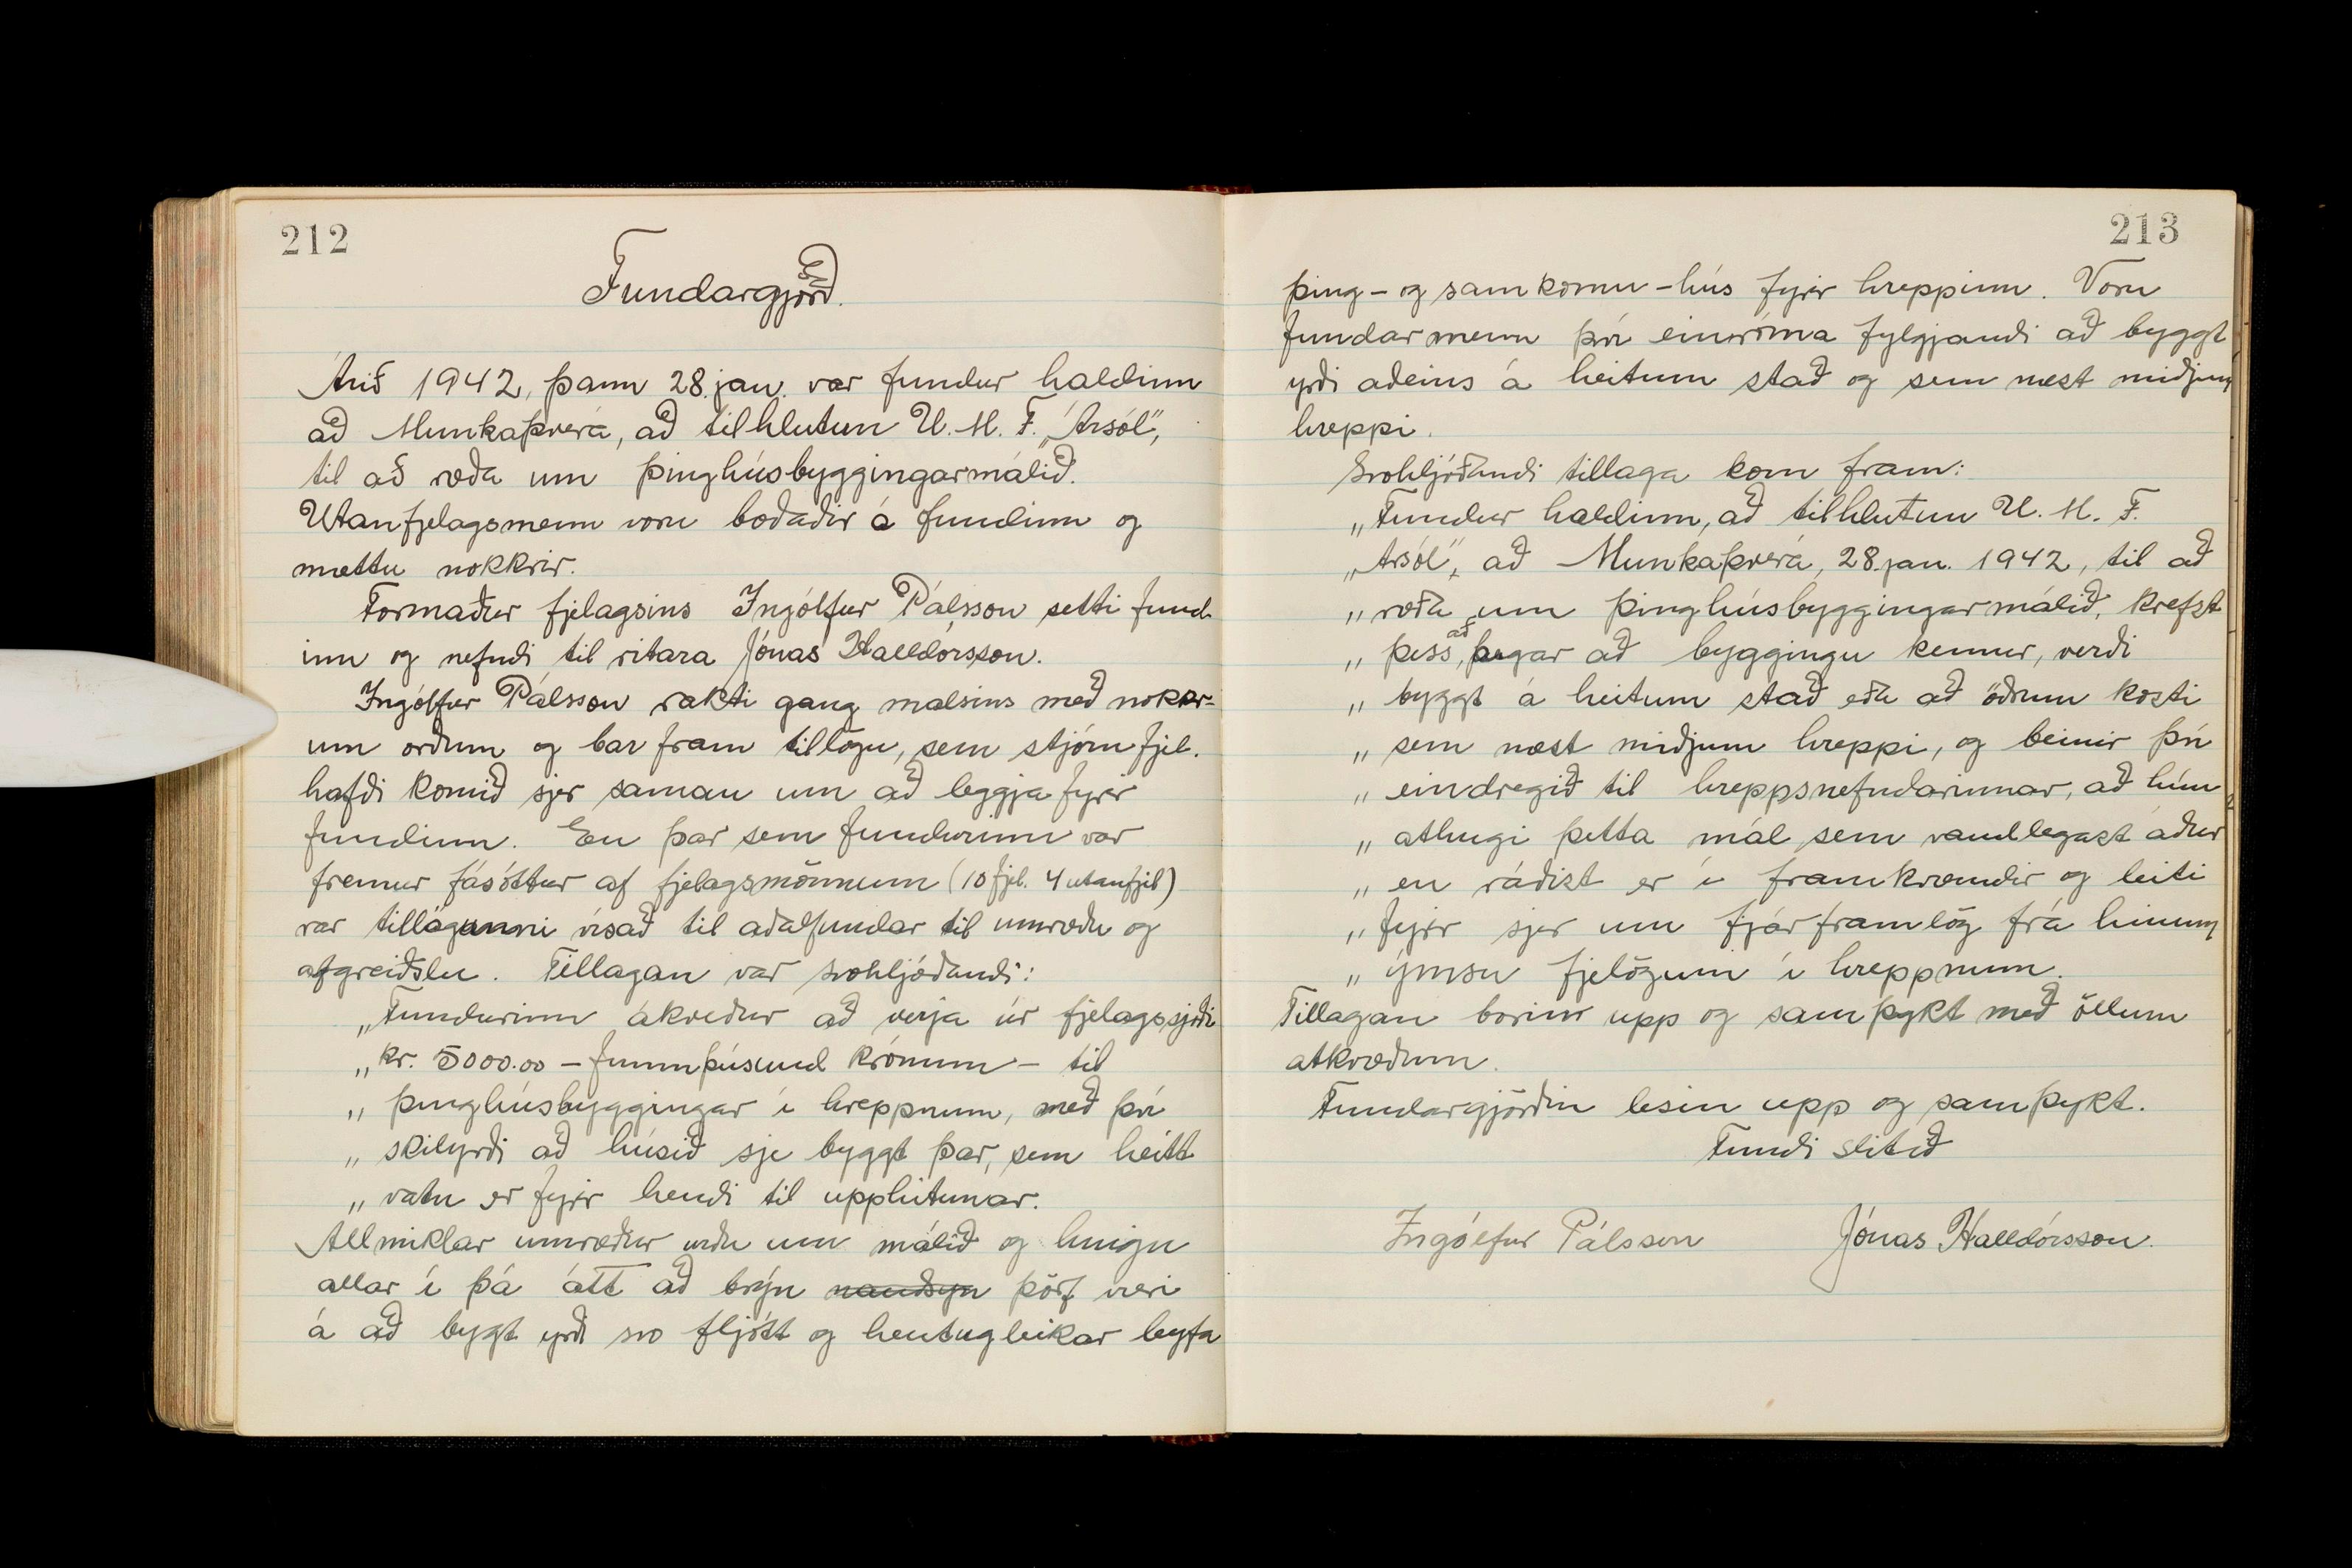 212
Fundargjörð.
Árið 1942, þann 28. jan. var fundur haldinn
að Munkaþverá, að tilhlutun U. M. F. „Ársól",
til að ræða um þinghúsbyggingarmálið.
Utanfjelagsmenn voru boðaðir á fundinn og
mættu nokkrir.
Formaður fjelagsins Ingólfur Pálsson setti fund-
inn og nefndi til ritara Jónas Halldórsson.
Ingólfur Pálsson rakti gang malsins með nokkr-
um orðum og bar fram tillögu, sem stjórn fjel.
hafði komið sjer saman um að leggja fyrir
fundinn. En þar sem fundurinn var
fremur fásóttur af fjelagsmönnum (10 fjel. 4 utanfjel)
var tillögunni vísað til aðalfundar til umræðu og
afgreiðslu. Tillagan var svohljóðandi:
„Fundurinn ákveður að verja úr fjelagssjóði
„kr. 5000.00 – fimmþúsund krónum – til
„ þinghúsbyggingar í hreppnum, með því
„ skilyrði að húsið sje byggt þar, sem heitt
„ vatn er fyrir hendi til upphitunar.
Allmiklar umræður urðu um málið og hnigu
allar í þá átt að brýn nauðsyn þörf væri
á að bygt yrði svo fljótt og hentugleikar leyfa
213
þing- og samkomu-hús fyrir hreppinn. Voru
fundarmenn því einróma fylgjandi að byggt
yrði aðeins á heitum stað og sem næst miðjum
hreppi.
Svohljóðandi tillaga kom fram:
„Fundur haldinn, að tilhlutun U. M. F.
„Ársól", að Munkaþverá, 28. jan. 1942, til að
„ ræða um þinghúsbyggingarmálið, krefst
„ þess, að þegar að byggingu kemur, verði
„ byggt á heitum stað eða að öðrum kosti
„ sem næst miðjum hreppi, og beinir því
„ eindregið til hreppsnefndarinnar, að hún
„ athugi þetta mál sem vandlegast áður
„ en ráðist er í framkvæmdir og leiti
„ fyrir sjer um fjárframlög frá hinum
„ ýmsu fjelögum í hreppnum.
Tillagan borin upp og samþykt með öllum
atkvæðum.
Fundargjörðin lesin upp og samþykt.
Fundi slitið
Ingólfur Pálsson Jónas Halldórsson.